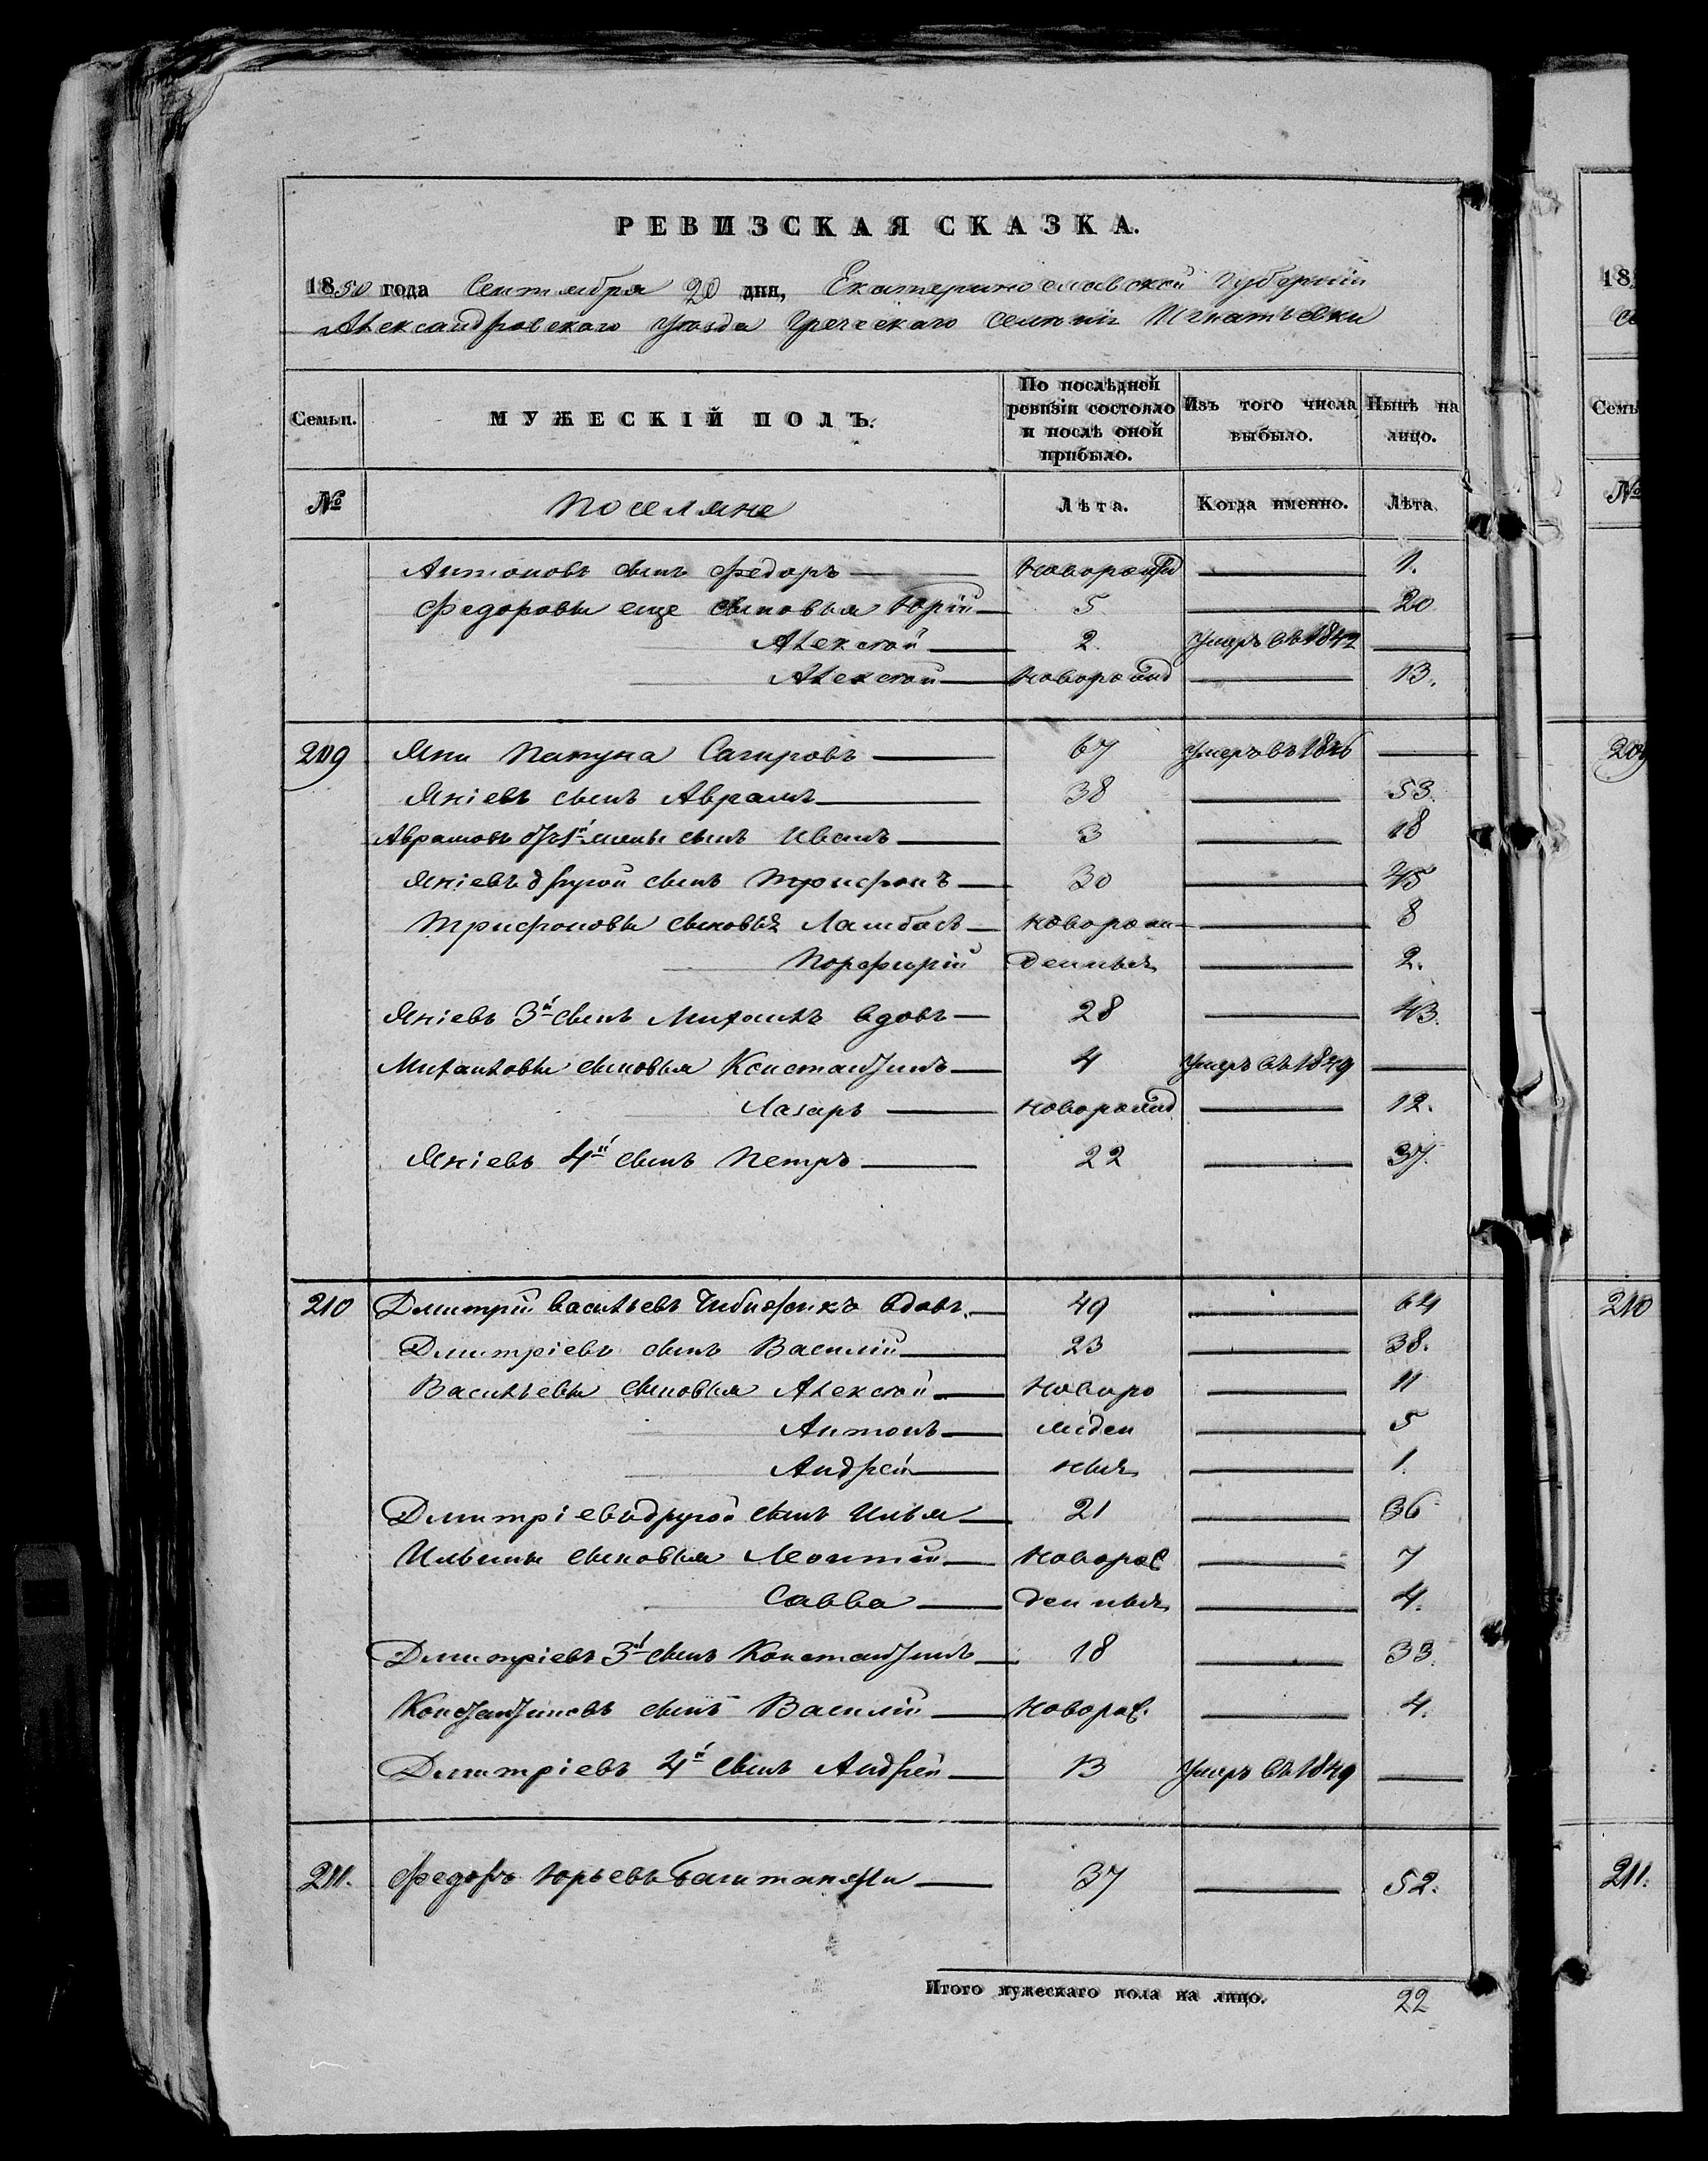 РЕВИЗСКАЯ СКАЗКА.
1850 года Сентября 20 дня, Екатеринославской Губерніи
Александровскаго Уѣзда Греческаго селенія Игнатьевки
Семьи. МУЖЕСКІЙ ПОЛЪ. По послѣдней ревизіи состояло и послѣ оной прибыло. Изъ того числа выбыло. Нынѣ на лицо.
№ Поселяне Лѣта. Когда именно. Лѣта
Антоновъ сынъ Федоръ новорожд 1.
Федоровы еще сыновья Юрій 5 20
Алексѣй 2. умеръ въ 1842
Алексѣй новорожд 13.
209 Яни Сагировъ 67 умеръ въ 1836
Яніевъ сынъ Аврамъ 38 53.
Аврамовъ отъ 1й жены сынъ Иванъ 3 18
Яніевъ другой сынъ Трифонъ 30 45
Трифоновы сыновья Ламбосъ новорож 8
Порфирій денныхъ 2.
Яніевъ 3й сынъ Михаилъ вдовъ 28 43.
Михаиловы сыновья Константинъ 4 умеръ въ 1849
Лазарь новорожд 12.
Яніевъ 4й сынъ Петръ 22 37.
210 Дмитрій Васильевъ вдовъ. 49 64
Дмитріевъ сынъ Василій 23 38.
Васильевы сыновья Алексѣй новоро 11
Антонъ жден 5
Андрей ныхъ 1.
Дмитріевъ другой сынъ Илья 21 36
Ильины сыновья Леонтій новорож 7
Савва денныхъ 4.
Дмитріевъ 3й сынъ Константинъ 18 33.
Константиновъ сынъ Василій новорож. 4.
Дмитріевъ 4й сынъ Андрей 13 умеръ въ 1849
211. Федоръ Юрьевъ 37 52.
Итого мужескаго пола на лицо. 22
18
Семь
№
209
210
211.